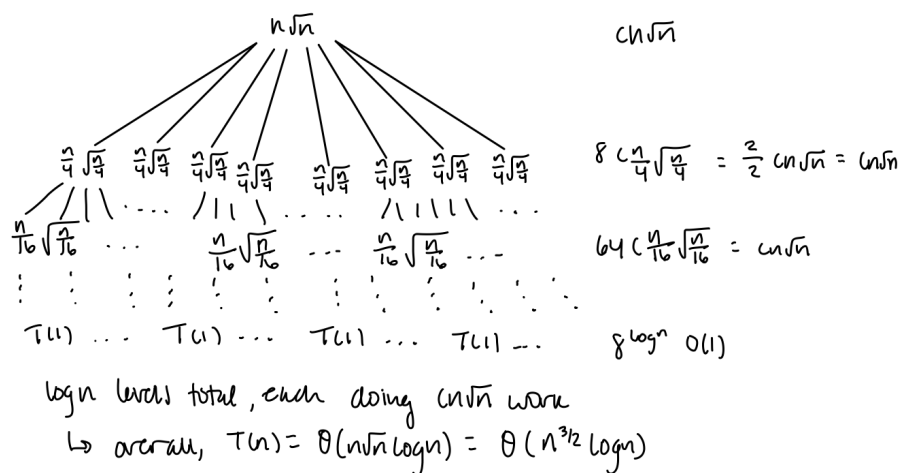 n√n cn√n
n/4 √(n/4) n/4 √(n/4) n/4 √(n/4) n/4 √(n/4) n/4 √(n/4) n/4 √(n/4) n/4 √(n/4) n/4 √(n/4) 8 c n/4 √(n/4) = 2/2 cn√n = cn√n
n/16 √(n/16) ... n/16 √(n/16) ... n/16 √(n/16) ... 64 c n/16 √(n/16) = cn√n
T(1) ... T(1) ... T(1) ... T(1) ... 8^logn O(1)
logn levels total, each doing cn√n work
↳ overall, T(n) = θ(n√n logn) = θ(n^3/2 logn)